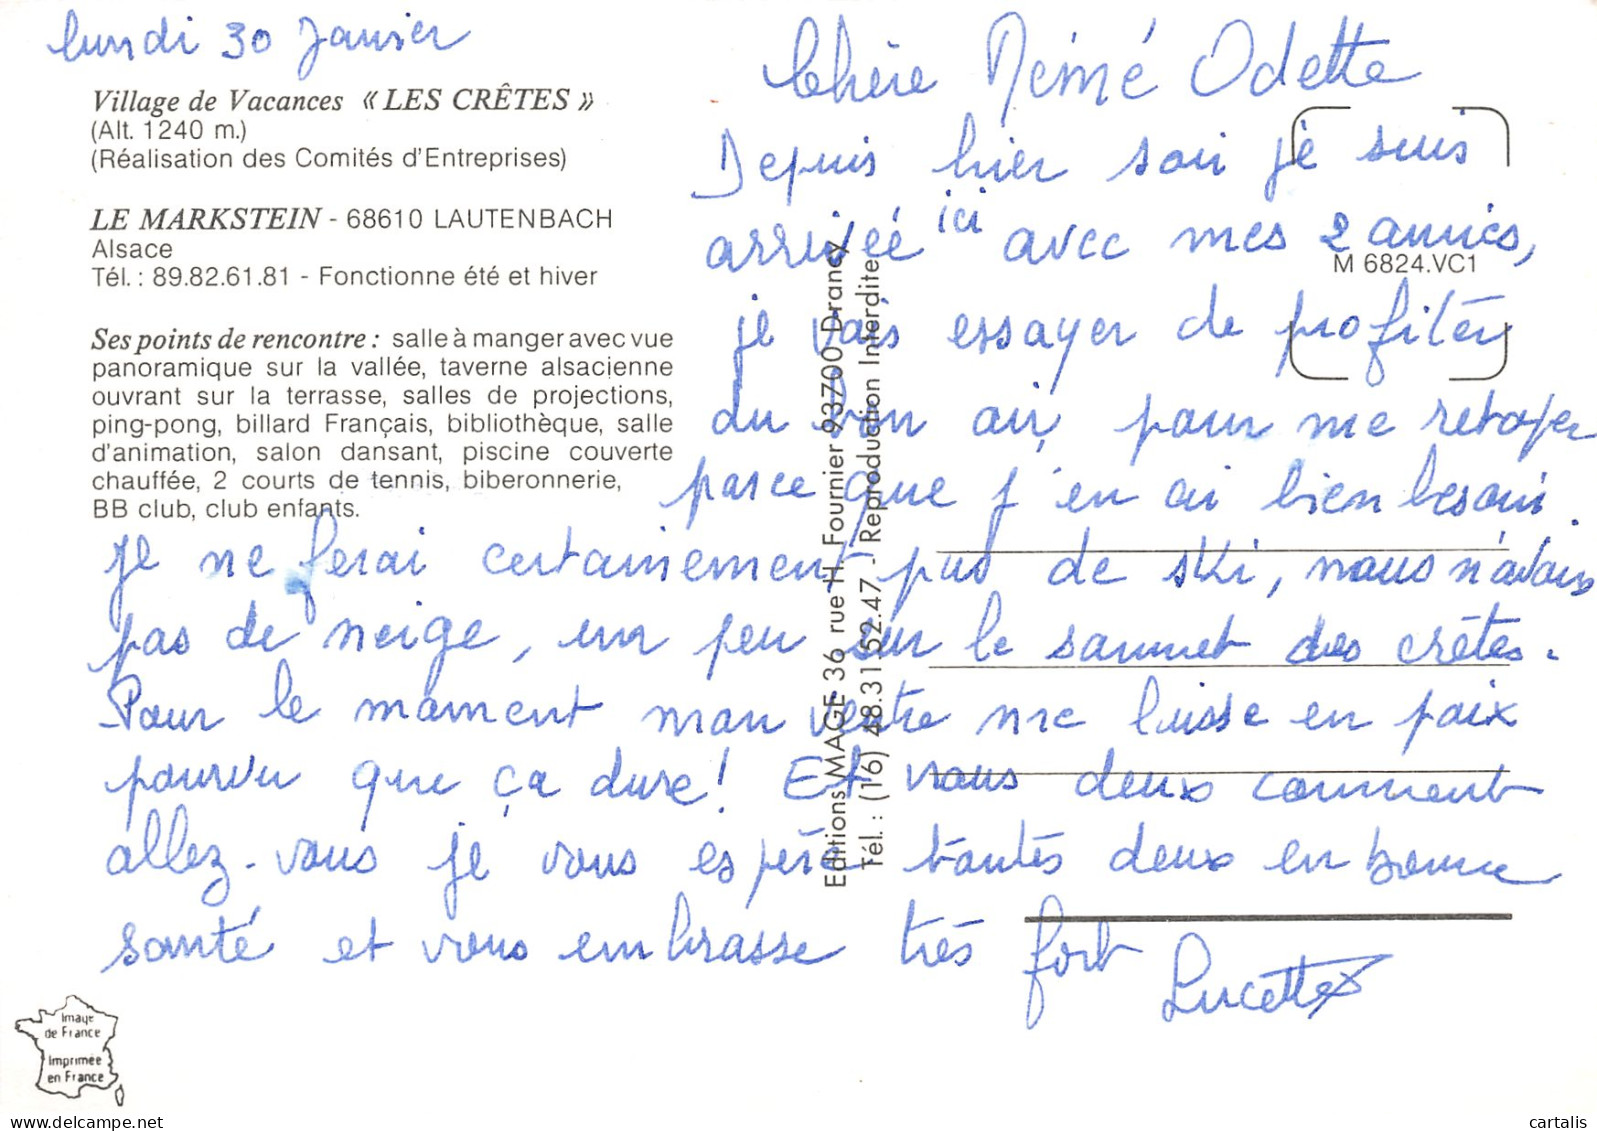 lundi 30 Janvier
Village de Vacances « LES CRÊTES »
(Alt. 1240 m.)
(Réalisation des Comités d'Entreprises)
LE MARKSTEIN - 68610 LAUTENBACH
Alsace
Tél. : 89.82.61.81 - Fonctionne été et hiver
Ses points de rencontre : salle à manger avec vue
panoramique sur la vallée, taverne alsacienne
ouvrant sur la terrasse, salles de projections,
ping-pong, billard Français, bibliothèque, salle
d'animation, salon dansant, piscine couverte
chauffée, 2 courts de tennis, biberonnerie,
BB club, club enfants.
Chère Mémé Odette
Depuis hier soir je suis
arrivée ici avec mes 2 amies,
je vais essayer de profiter
du bon air pour me retaper
parce que j'en ai bien besoin.
Je ne ferai certainement pas de ski, nous n'avons
pas de neige, un peu sur le sommet des crêtes.
Pour le moment mon ventre me laisse en paix
pourvu que ça dure! Et vous deux comment
allez-vous je vous espère toutes deux en bonne
santé et vous embrasse très fort
Lucette
M 6824.VC1
Editions MAGE 36 rue H. Fournier 93700 Drancy
Tél. : (16) 48.31.52.47 - Reproduction Interdite
Image
de France
Imprimée
en France
cartalis